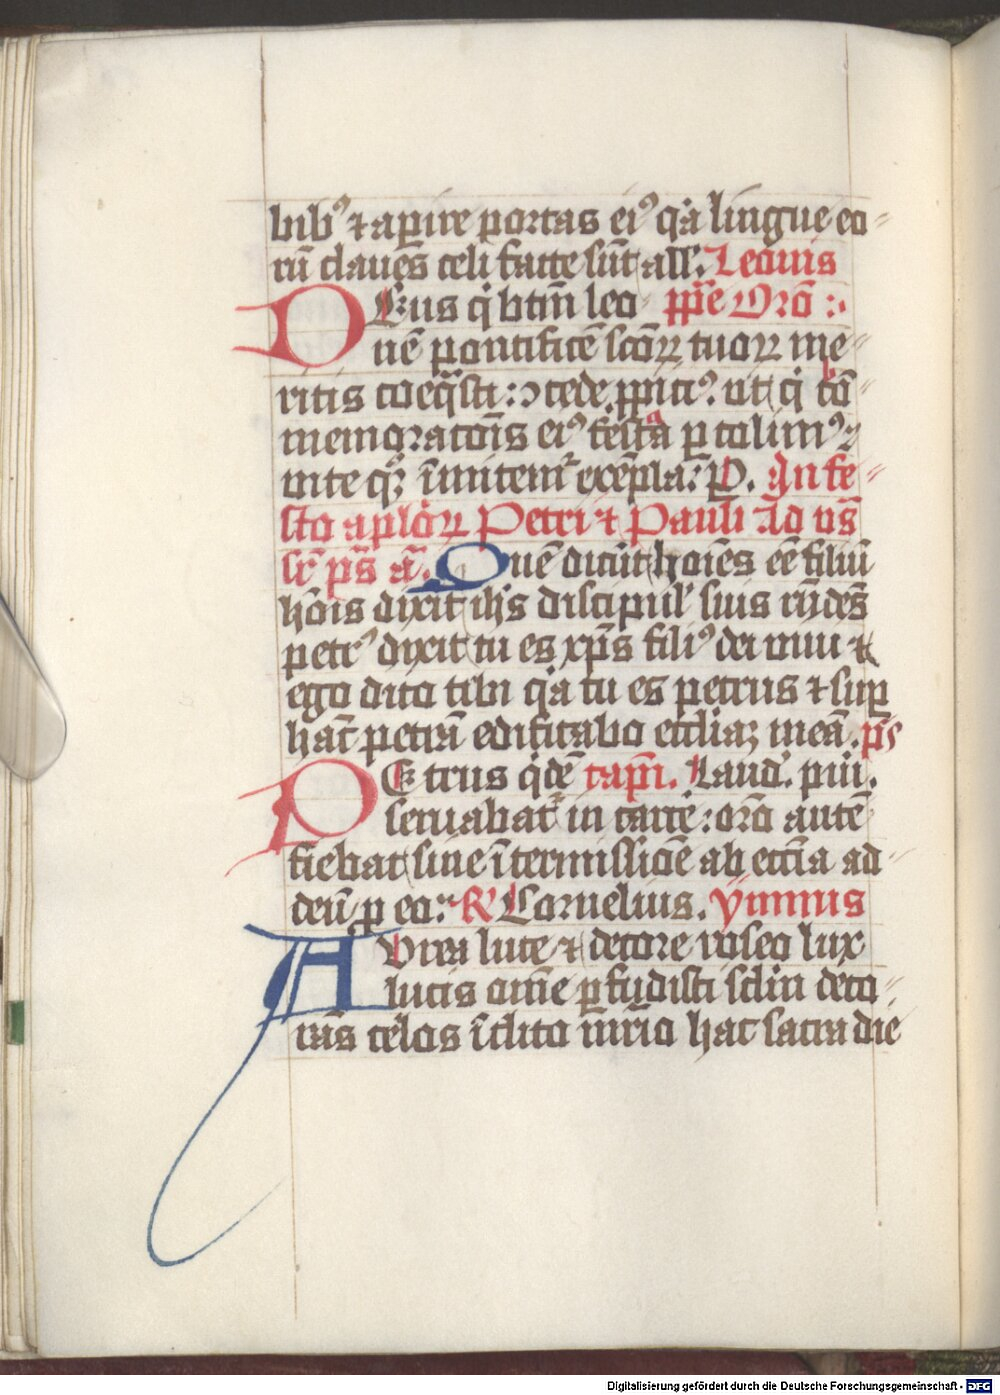 bibꝰ ⁊ aꝑire portas eiꝰ q̇a lingue eo⸗
rū claues celi facte sūt all'. Leonis
DEus q̇ btm̄ leo ꝑꝑe Orō :·
nē pontificē scōꝝ tuoꝝ me⸗
ritis coeq̄sti : ↄcede ꝓpiciꝰ ut q̇ cō⸗
memoracōis eiꝰ festa ꝑcolimꝰ
vite qꝫ īmitemᷣ exēpla. P. In fe⸗
sto aplōꝝ Petri ⁊ Pauli ad vs̄
sup̄ ps̄ a̅. Quē dicūt hoīes eē filiū
hōis dixit ihs̄ discipul' suis rn̄dēs
petrꝰ dixit tu es xp̄s filiꝰ dei viui ⁊
ego dico tibi q̇a tu es petrus ⁊ suꝑ
hāc petrā edificabo ecclīaꝫ meā. ps̄
PEtrus q̇dē cap̄. Laud'. pm̄.
seruabatᷣ in carcē : orō autē
fiebat sine ītermissiōe ab ecc̄ia ad
deū ꝓ eo. R' Cornelius. ymnus
AUrea luce ⁊ decore roseo lux
lucis om̄e ꝑfudisti sclm̄ deco⸗
rās celos īclito mr̄io hac sacra die
Digitalisierung gefördert durch die Deutsche Forschungsgemeinschaft - DFG